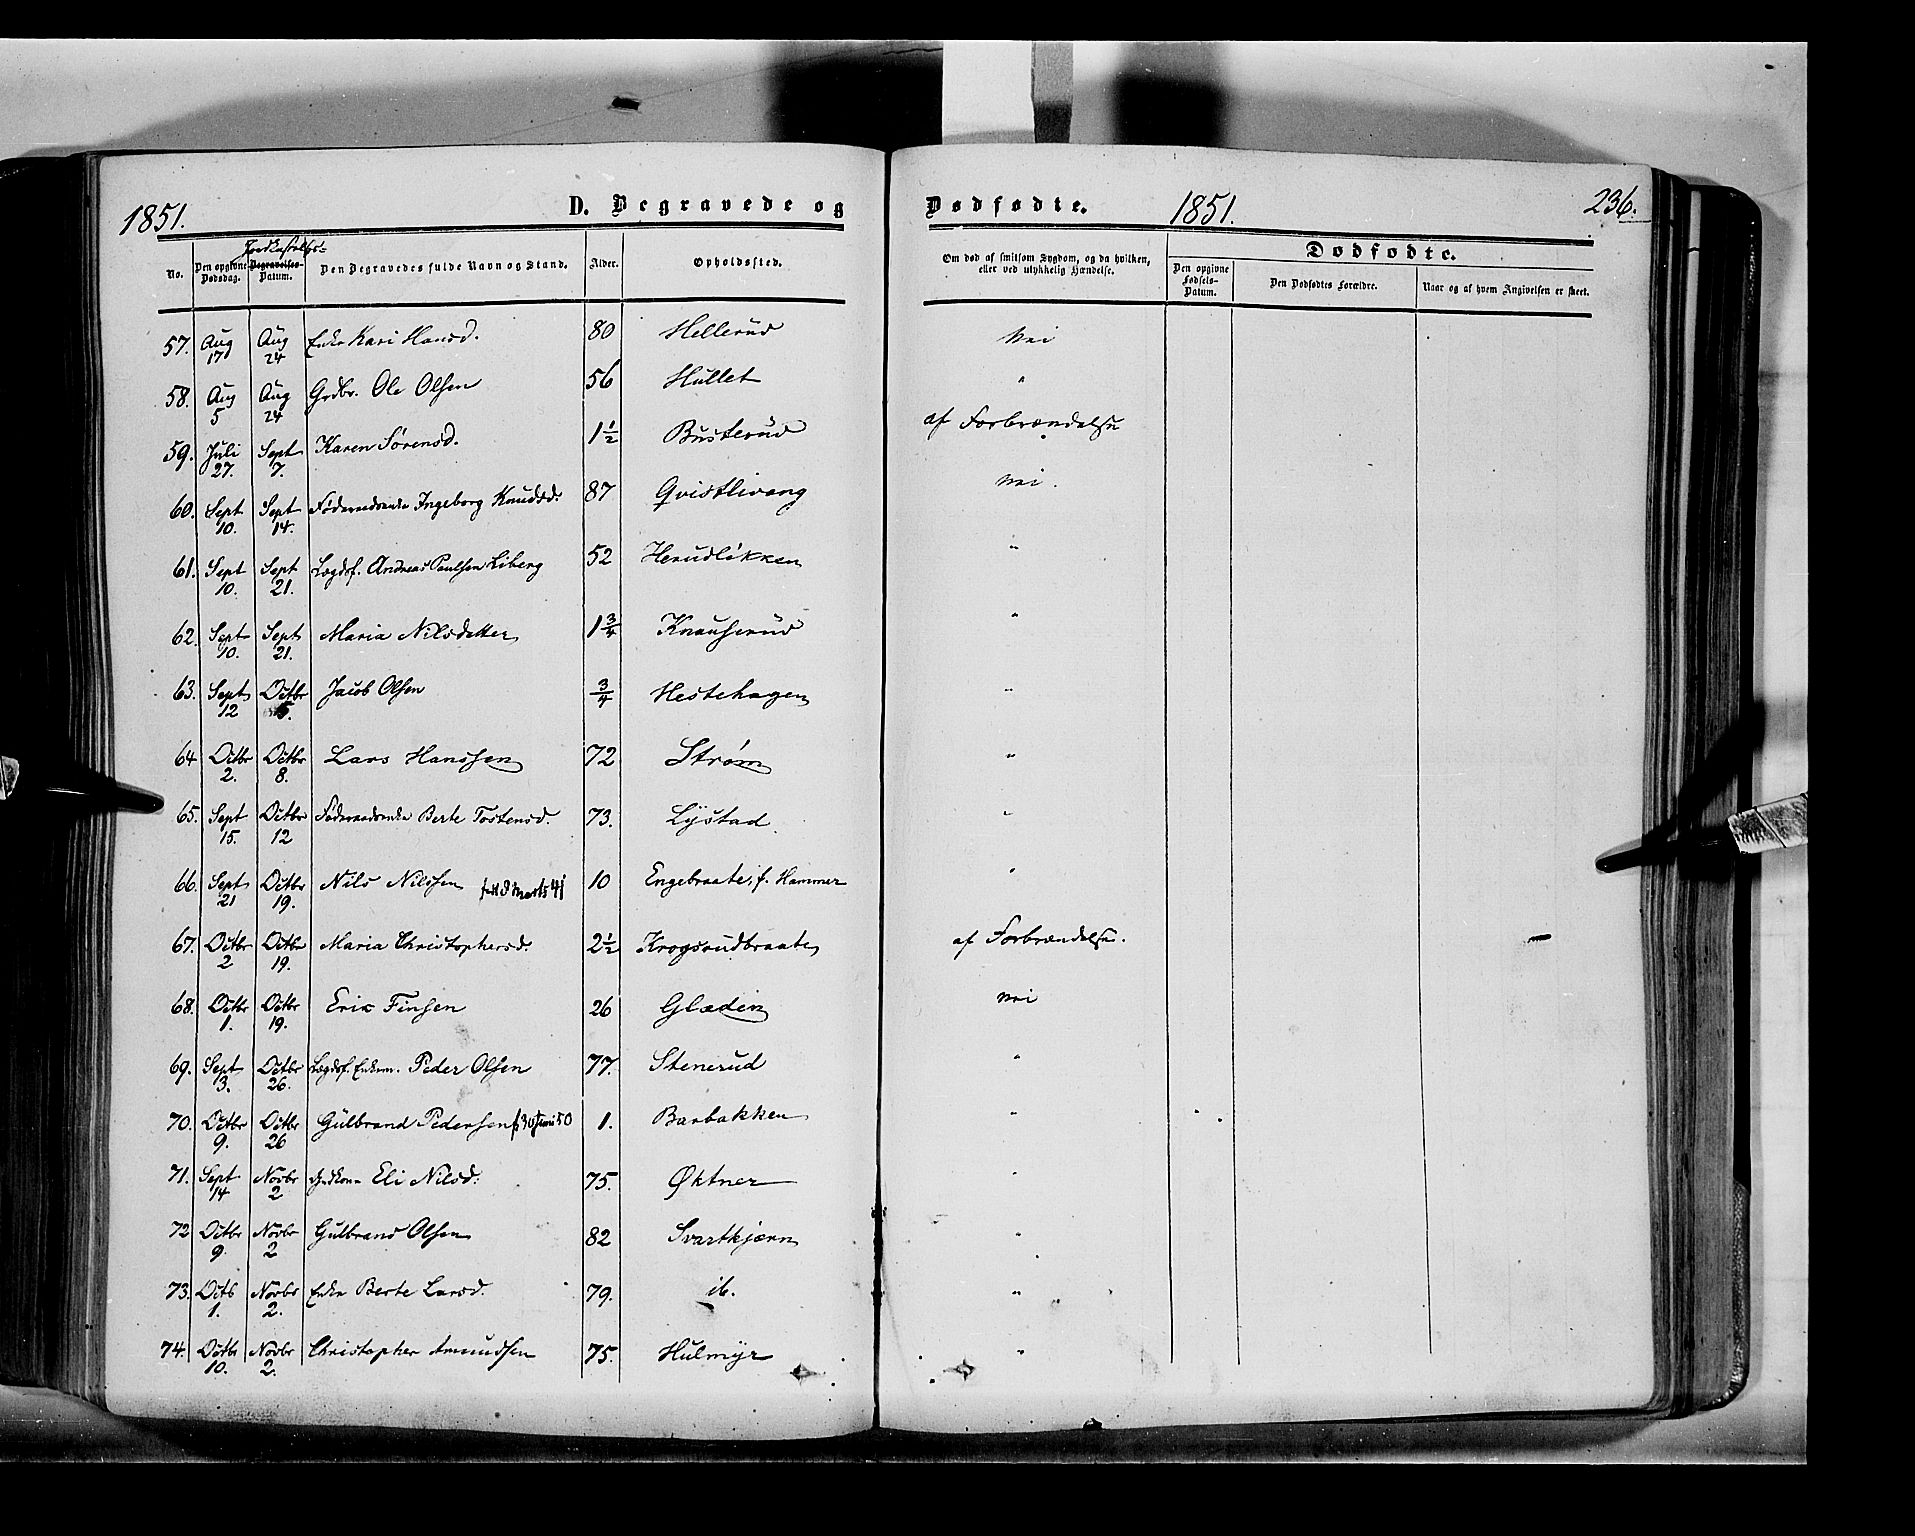 1851. D. Begravede og Dødfødte. 1851. 236.
Jordkastelses-
No. Den opgivne Dødsdag. Begravelses-Datum. Den Begravedes fulde Navn og Stand. Alder. Opholdssted. Om død af smitsom Sygdom, og da hvilken, eller ved ulykkelig Hændelse. Dødfødte.
Den opgivne Fødsels-Datum. Den Dødfødtes Forældre. Naar og af hvem Angivelsen er skeet.
57. Aug 17 Aug 24 Enke Kari Hansd. 80 Hellerud Nei
58. Aug 5 Aug 24 Grdbr. Ole Olsen 56 Hullet "
59. Juli 27. Sept 7. Karen Sørensd. 1½ Busterud af Forbrændelse
60. Sept 10. Sept 14. Føderaadsenke Ingeborg Knudsd. 87 Qvistlivang Nei.
61. Sept 10. Sept 21. Logdsf. Andreas Paulsen Liberg 52 Herudløkken "
62. Sept 10. Sept 21. Maria Nilsdatter 1¾ Knauserud "
63. Sept 12 Octbr 5. Jacob Olsen ¾ Hestehagen "
64 Octbr 2. Octbr 8. Lars Hanssen 72 Strøm "
65. Sept 15. Octbr 12 Føderaadsenke Berte Tostensd. 73. Lystad "
66. Sept 21 Octbr 19. Nils Nilssen Marts 41 10 Engebraate, f. Hammer "
67. Octbr 2 Octbr 19. Maria Christophersd. 2½ Krogsrudbraate af Forbrændelse.
68. Octbr 1. Octbr 19. Erik Finsen 26 Glædin Nei
69. Sept 3. Octbr 26. Logdsf. Enkem. Peder Olsen 77. Stenerud "
70. Octbr 9. Octbr 26 Gulbrand Pedersen f 30 Juni 50 1. Barbakken "
71. Sept 14 Novbr 2 Eli Nilsd. 75. Øktner "
72 Octbr 9. Novbr 2 Gulbrand Olsen 82 Svartkjærn "
73. Octb 1. Novbr 2. Enke Berte Larsd. 79. ib. "
74. Octbr 10. Novbr 2. Christopher Amundsen 75. Hulmyr "